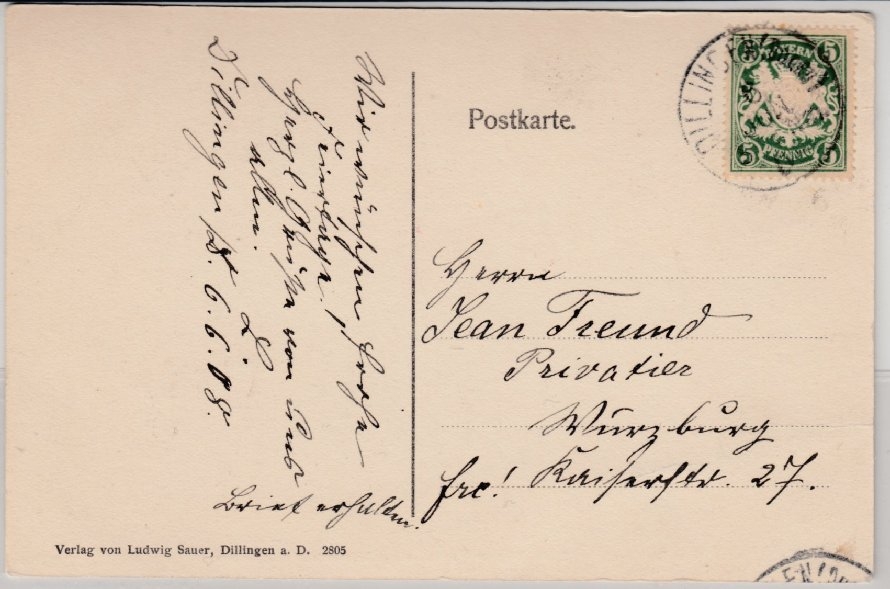 Postkarte.
BAYERN
5 5
5 5
PFENNIG
DILLINGEN
Wir wünschen frohe
Feiertage!
Herzl. Grüße von uns
allen.
Dillingen, 6.6.08.
Brief erhalten.
Herrn
Jean Freund
Privatier
Würzburg
frc! Kaiserstr. 27.
Verlag von Ludwig Sauer, Dillingen a. D. 2805